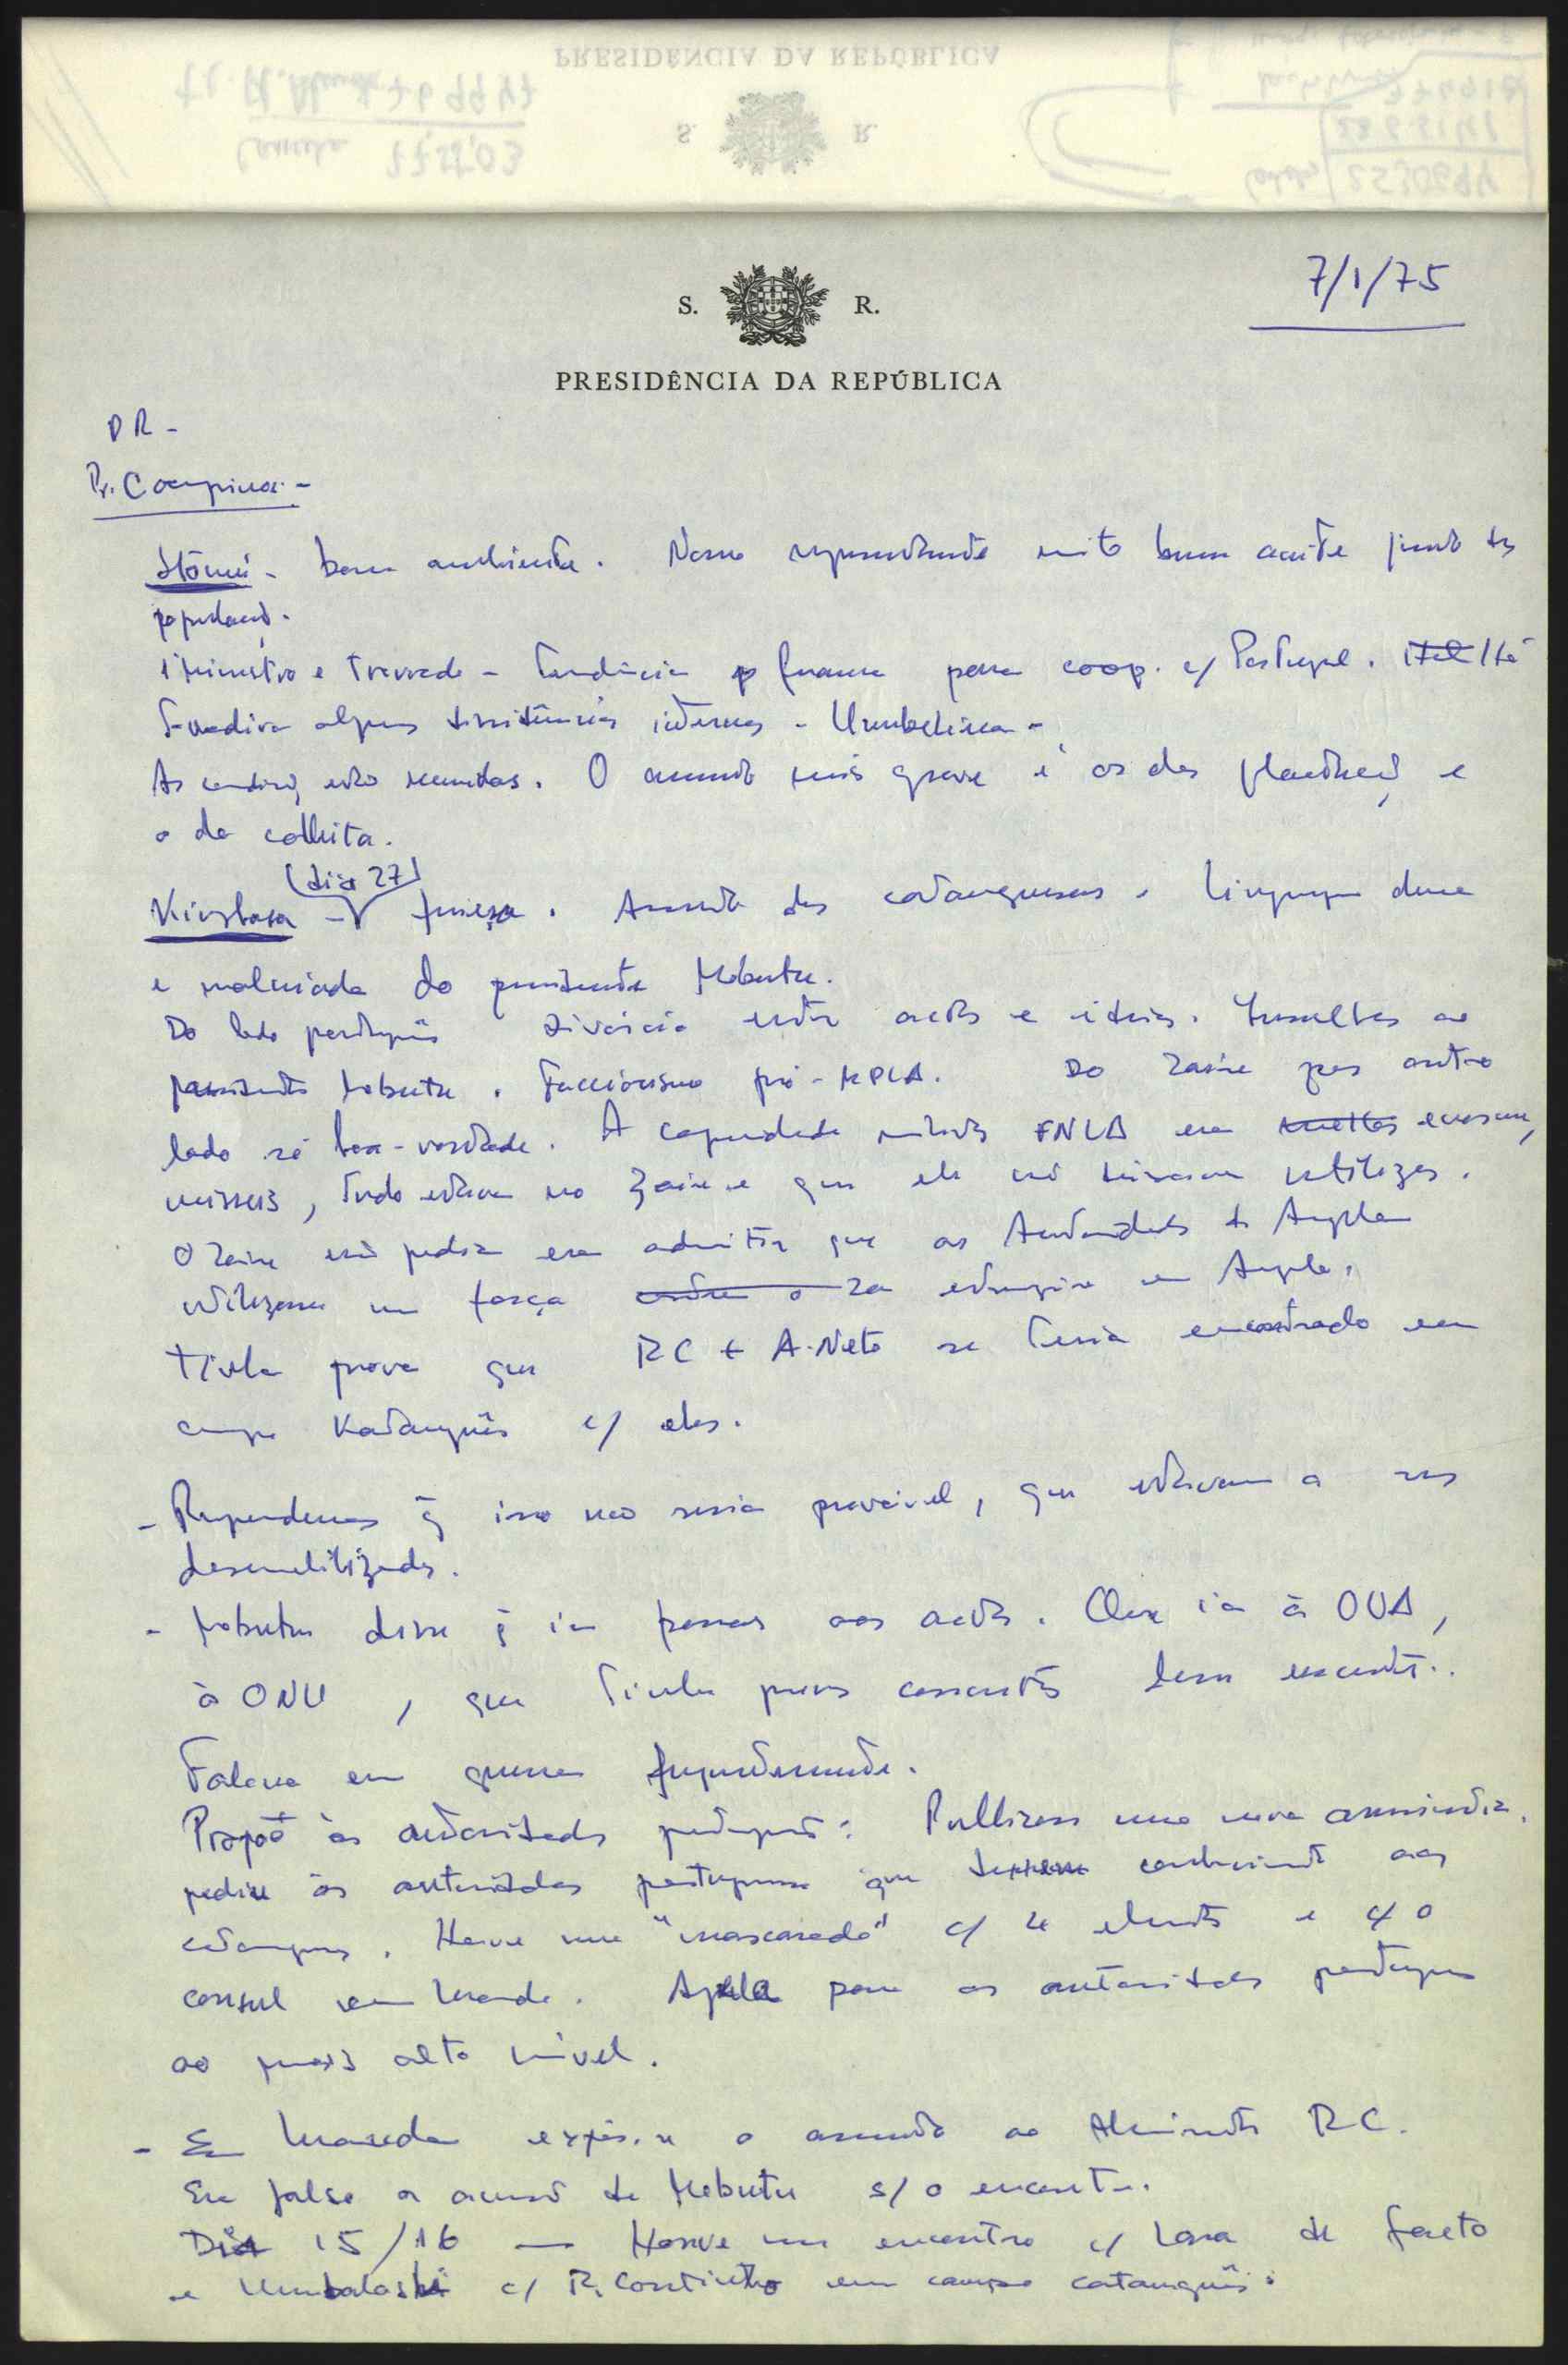 PRESIDÊNCIA DA REPÚBLICA
S. R.
7/1/75
S. R.
PRESIDÊNCIA DA REPÚBLICA
DR -
Pr. Campinos -
S Tomé - bom ambiente. Nosso representante muito bem aceite junto das
populações.
1º Ministro e Trovoada - Tendência franca para coop. c/ Portugal. Há
algumas dissidências internas - Umbelina -
As condições estão reunidas. O assunto mais grave é os das plantações e
o da colheita.
Kinshasa - (dia 27) frieza. Assunto dos catangueses. Linguagem dura
e malcriada do presidente Mobutu.
Do lado português divórcio entre actos e ideias. Insultos ao
presidente Mobutu. Faccionismo pró-MPLA. Do Zaire por outro
lado só boa-vontade. A capacidade militar FNLA era enorme,
misseis, tudo estava no Zaire e que ele não deixava utilizar.
O Zaire não podia era admitir que as Autoridades de Angola
utilizassem uma força estrangeira em Angola.
Tinha prova que RC + A. Neto se teria encontrado em
campo Katanguês c/ eles.
- Respondemos q̃ isso não seria provável, que estavam a ser
desmobilizados.
- Mobutu disse q̃ ia passar aos actos. Que ia à OUA,
à ONU, que tinha provas concretas desse encontro.
Falava em guerra frequentemente.
Propôs às autoridades portuguesas: Publicasse uma nova amnistia.
pedia às autoridades portuguesas que conhecimento aos
catangueses. Houve uma "mascarada" c/ 4 elementos e c/ o
consul em Luanda. Apela para as autoridades portuguesas
ao mais alto nível.
- Em Luanda expôs-se o assunto ao Almirante RC.
Era falsa a acusação de Mobutu s/ o encontro.
Dia 15/16 — Houve um encontro c/ Lara de facto
e c/ R. Coutinho em campo catanguês: